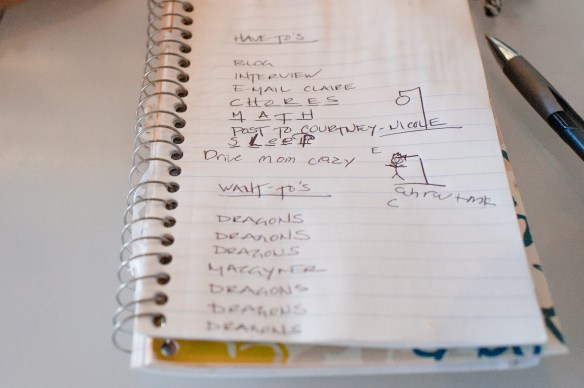 HAVE-TO'S
BLOG
INTERVIEW
E-MAIL CLAIRE
CHORES
MATH
POST TO COURTNEY-NICOLE
SLEEP
Drive mom crazy
E
C
WANT-TO'S
DRAGONS
DRAGONS
DRAGONS
MACGYVER
DRAGONS
DRAGONS
DRAGONS